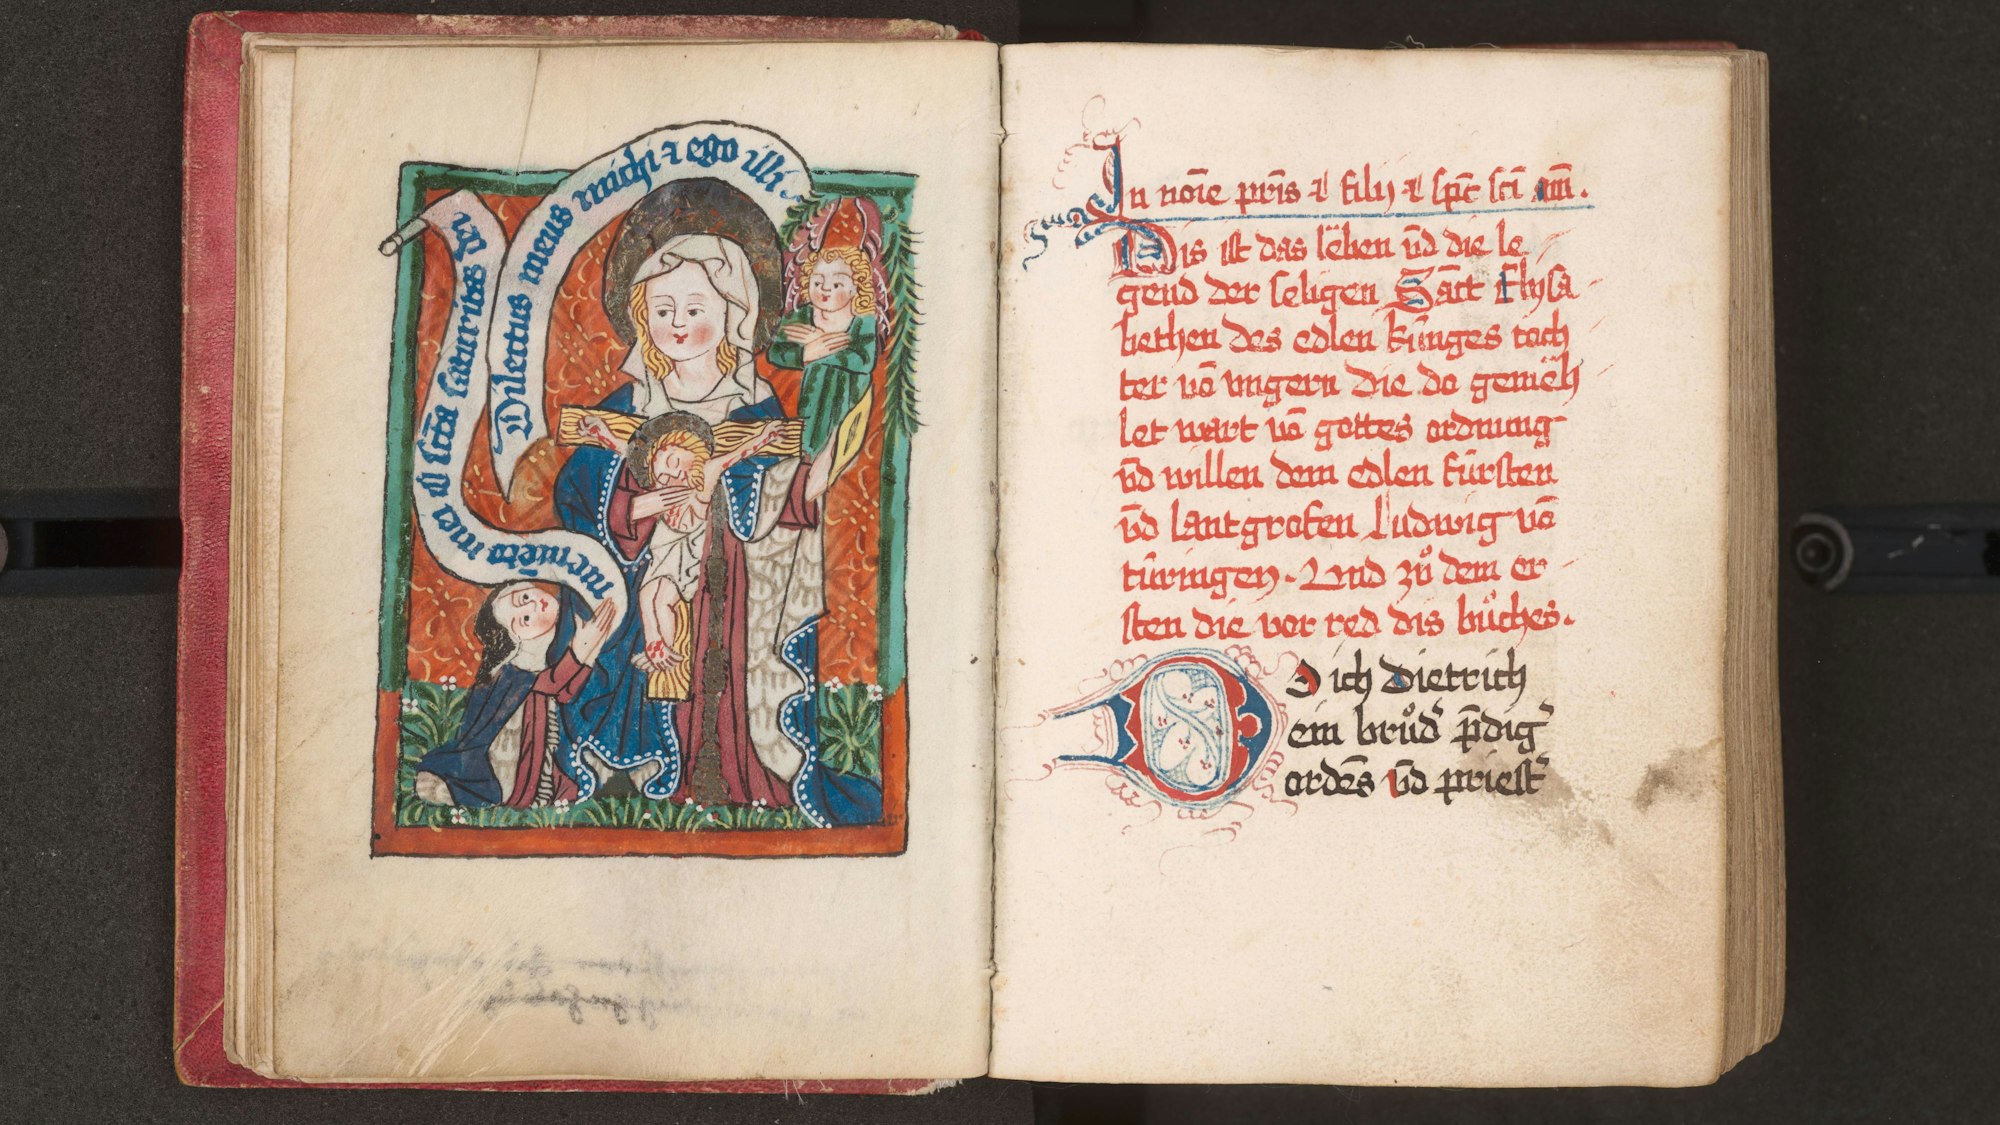 Dilectus meus michi ⁊ ego illi
memēto mei o scā saturitas dei
In noīe pr̄is ⁊ filij ⁊ sp̄c sc̄i am̄.
Dis ist das lëben v̄d die le
gend der seligen Sāct Elysa
bethen des edlen kúnges toch
ter vō vngern die do gemëh
let wart vō gottes ordnung
v̄d willen dem edlen fúrsten
v̄d lantgrofen Ludwig vō
túringen. Vnd zů dem er
sten die vor red dis bůches.
O ich Dietrich
ein brůd' p̄dig'
ordēs v̄d priest'